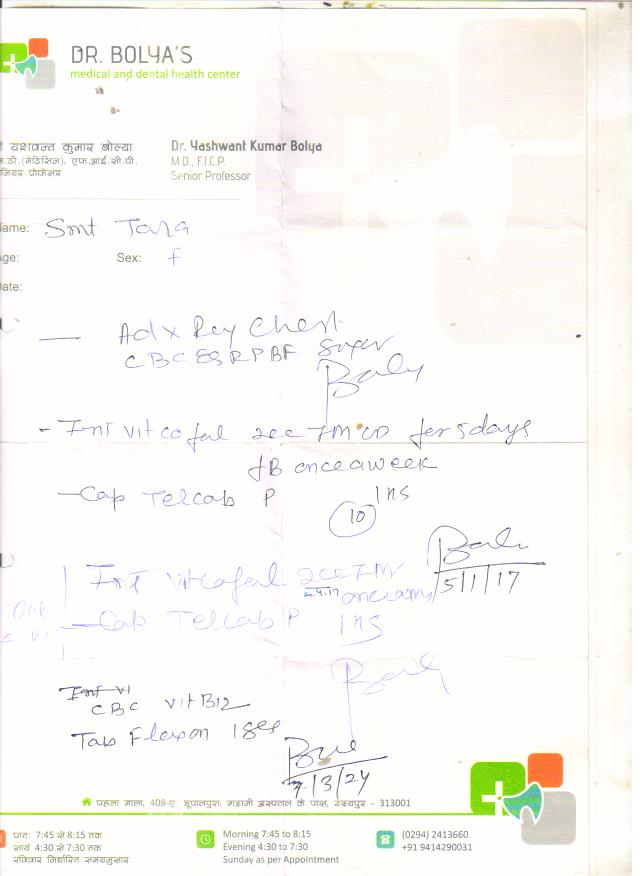 DR. BOLYA'S
medical and dental health center
यशवन्त कुमार बोल्या
(मेडिसिन), एफ.आई.सी.पी.
प्रोफेसर
Dr. Yashwant Kumar Bolya
M.D., F.I.C.P.
Senior Professor
ame: Smt Tara
ge: Sex: f
ate:
Adv X Ray Chest
CBC ESR PBF Sugar
- Inj Vitcofol 2cc IM OD for 5 days
fB once a week
- Cap Telcab P 1 ns
10
Inj Vitcofol 2cc IM
5/1/17
- Cap Telcab P 1 ns
CBC Vit B12
Tab Flexon 1 SOS
7/3/24
पहला माला, 408-ए, भूपालपुरा, के पास, उदयपुर - 313001
प्रातः 7:45 से 8:15 तक
सायं 4:30 से 7:30 तक
रविवार निर्धारित समयनुसार
Morning 7:45 to 8:15
Evening 4:30 to 7:30
Sunday as per Appointment
(0294) 2413660
+91 9414290031